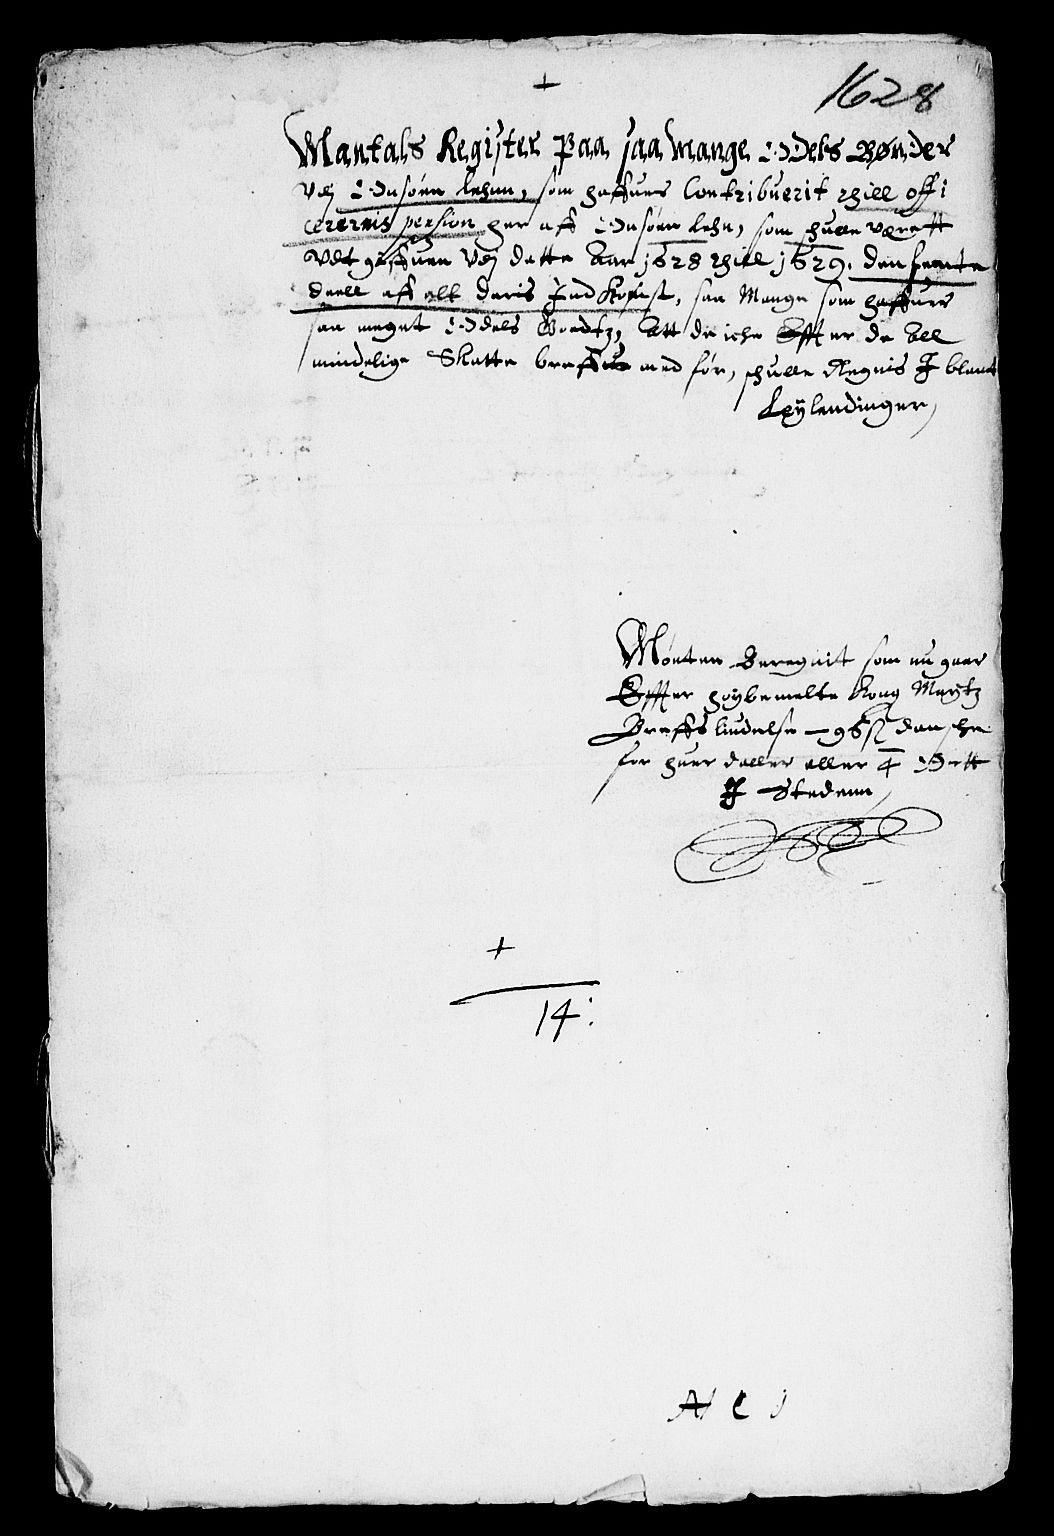 +
1628
Mantals Register Paa saa mange Oddels Bønder
Vdj Onsøen lehnn, som haffuer Contribuerit thill offi
cerernis pension her aff Onsøen lehn, som hulle Været
Vdt giffuen Vdj dette Aar 1628 thiil 1629. den femte
deell aff alt deris Ind Kofust, saa Mange som haffuer
saa meget Oddels Goedtz, Att de iche Effter de All
mindelige Skatte breffue med før, schulle Regnis I blant
Leylendinger,
Mønten Beregnit som nu gaar
Effter høybemelte Kong Maytz
Breffs liudelse - 96 ß dansche
for huer daller eller 4 Ortt
I Stedenn,
+
14:
A C